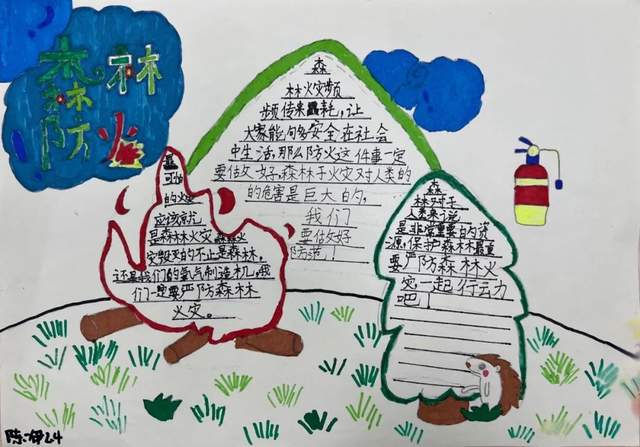 森林
防火
森
林火灾频
频传来噩耗,让
大家能够安全在社会
中生活,那么防火这件事一定
要估攵好,森林子火灾对人类的
的危害是巨大的,
我们
要估攵好
防范!
可怕
的火灾
应该就
是森林火灾
灾毁灭的不止是森林,
还是我们的氧气制造机,我
们一定要严防森林
火灾。
森
林对于
人类来说
是非常重要的资
源,保护森林最重
要严防森林火
灾,一起行云力
吧!